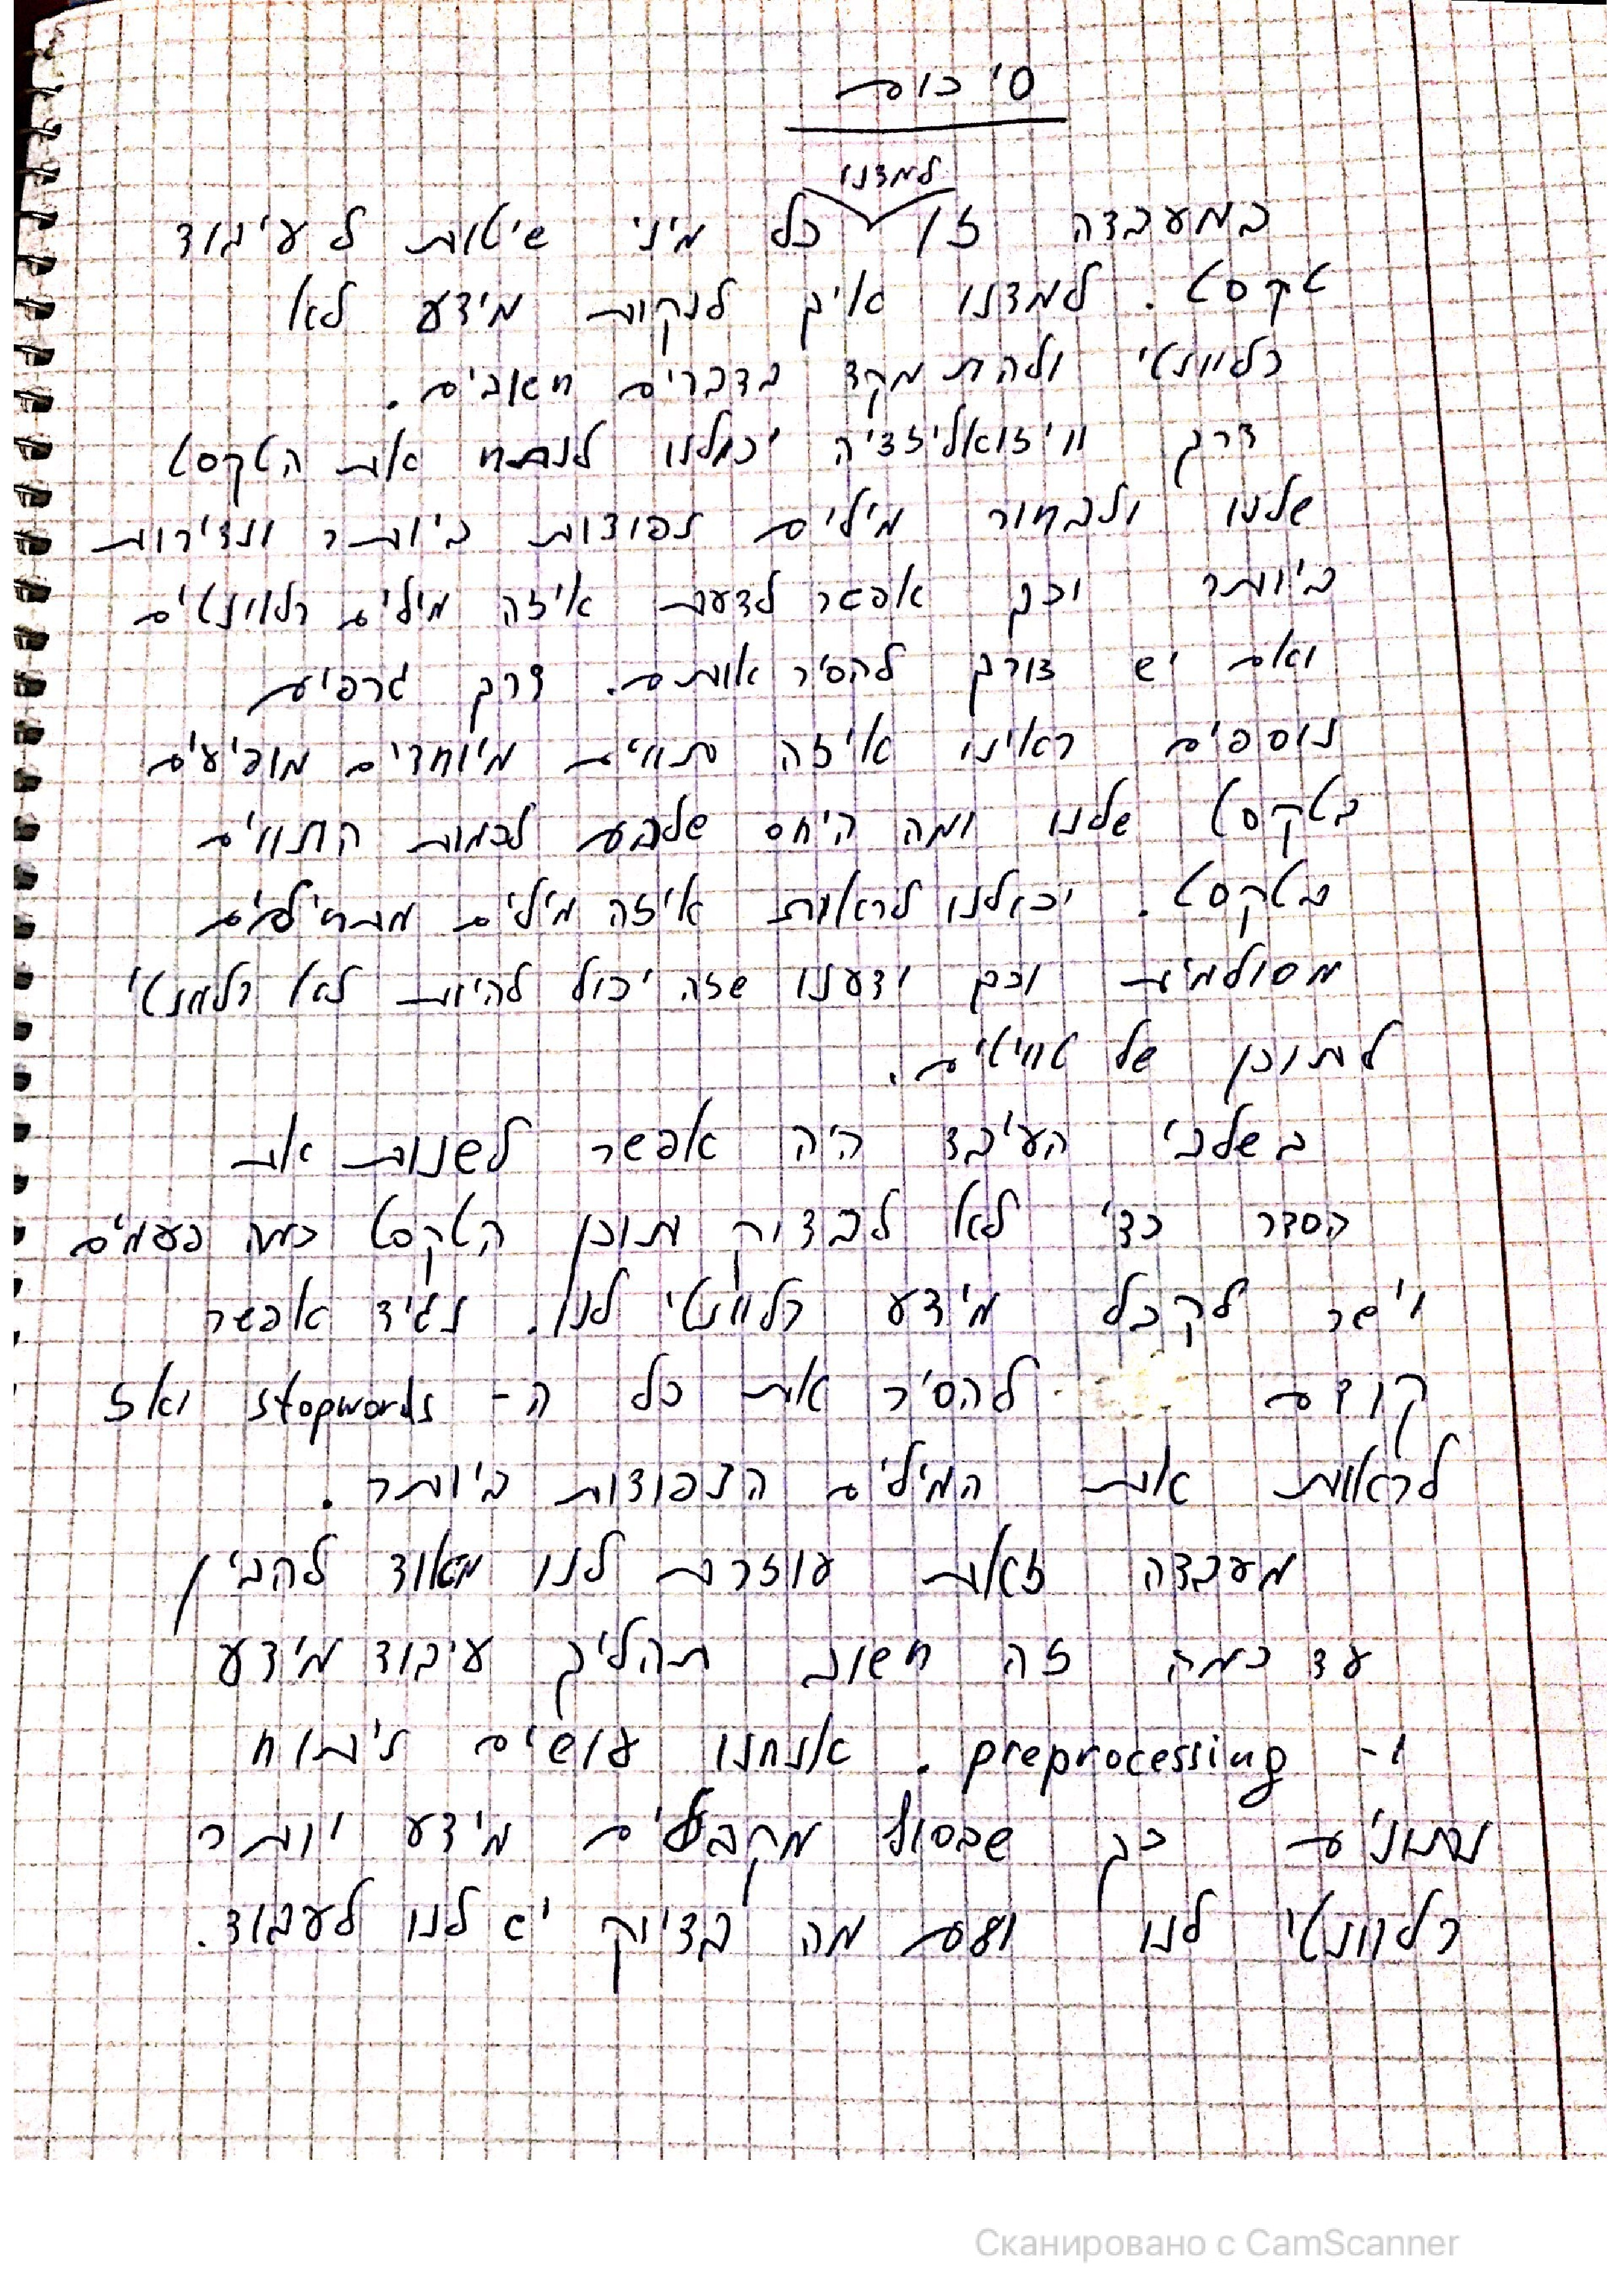 סיכום
למדנו
במעבדה זו כל מיני שיטות לעיבוד
טקסט. למדנו איך לנקות מידע לא
רלוונטי ולהתמקד בדברים חשובים.
דרך וויזואליזציה יכולנו לנתח את הטקסט
שלנו ולבחור מילים נפוצות ביותר ונדירות
ביותר וכך אפשר לדעת איזה מילים רלוונטים
ואם יש צורך להסיר אותם. דרך גרפים
נוספים ראינו איזה תווים מיוחדים מופיעים
בטקסט שלנו ומה היחס לכמות התווים
בטקסט. יכולנו לראות איזה מילים מתחילים
מסולמית וכך ידענו שזה יכול להיות לא רלוונטי
לתוכן של טוויטים.
בשלבי העיבד היה אפשר לשנות את
הסדר כדי לא לבדוק תוכן הטקסט כמה פעמים
וישר לקבל מידע רלוונטי לנו. נגיד אפשר
קודם להסיר את כל ה- stopwords ואז
לראות את המילים הנפוצות ביותר.
מעבדה זאת עוזרת לנו מאוד להבין
עד כמה זה חשוב תהליך עיבוד מידע
ו- preprocessing. אנחנו עושים ניתוח
נתונים כך שבסוף מקבלים מידע יותר
רלוונטי לנו ועם מה בדיוק יש לנו לעבוד.
Сканировано с CamScanner